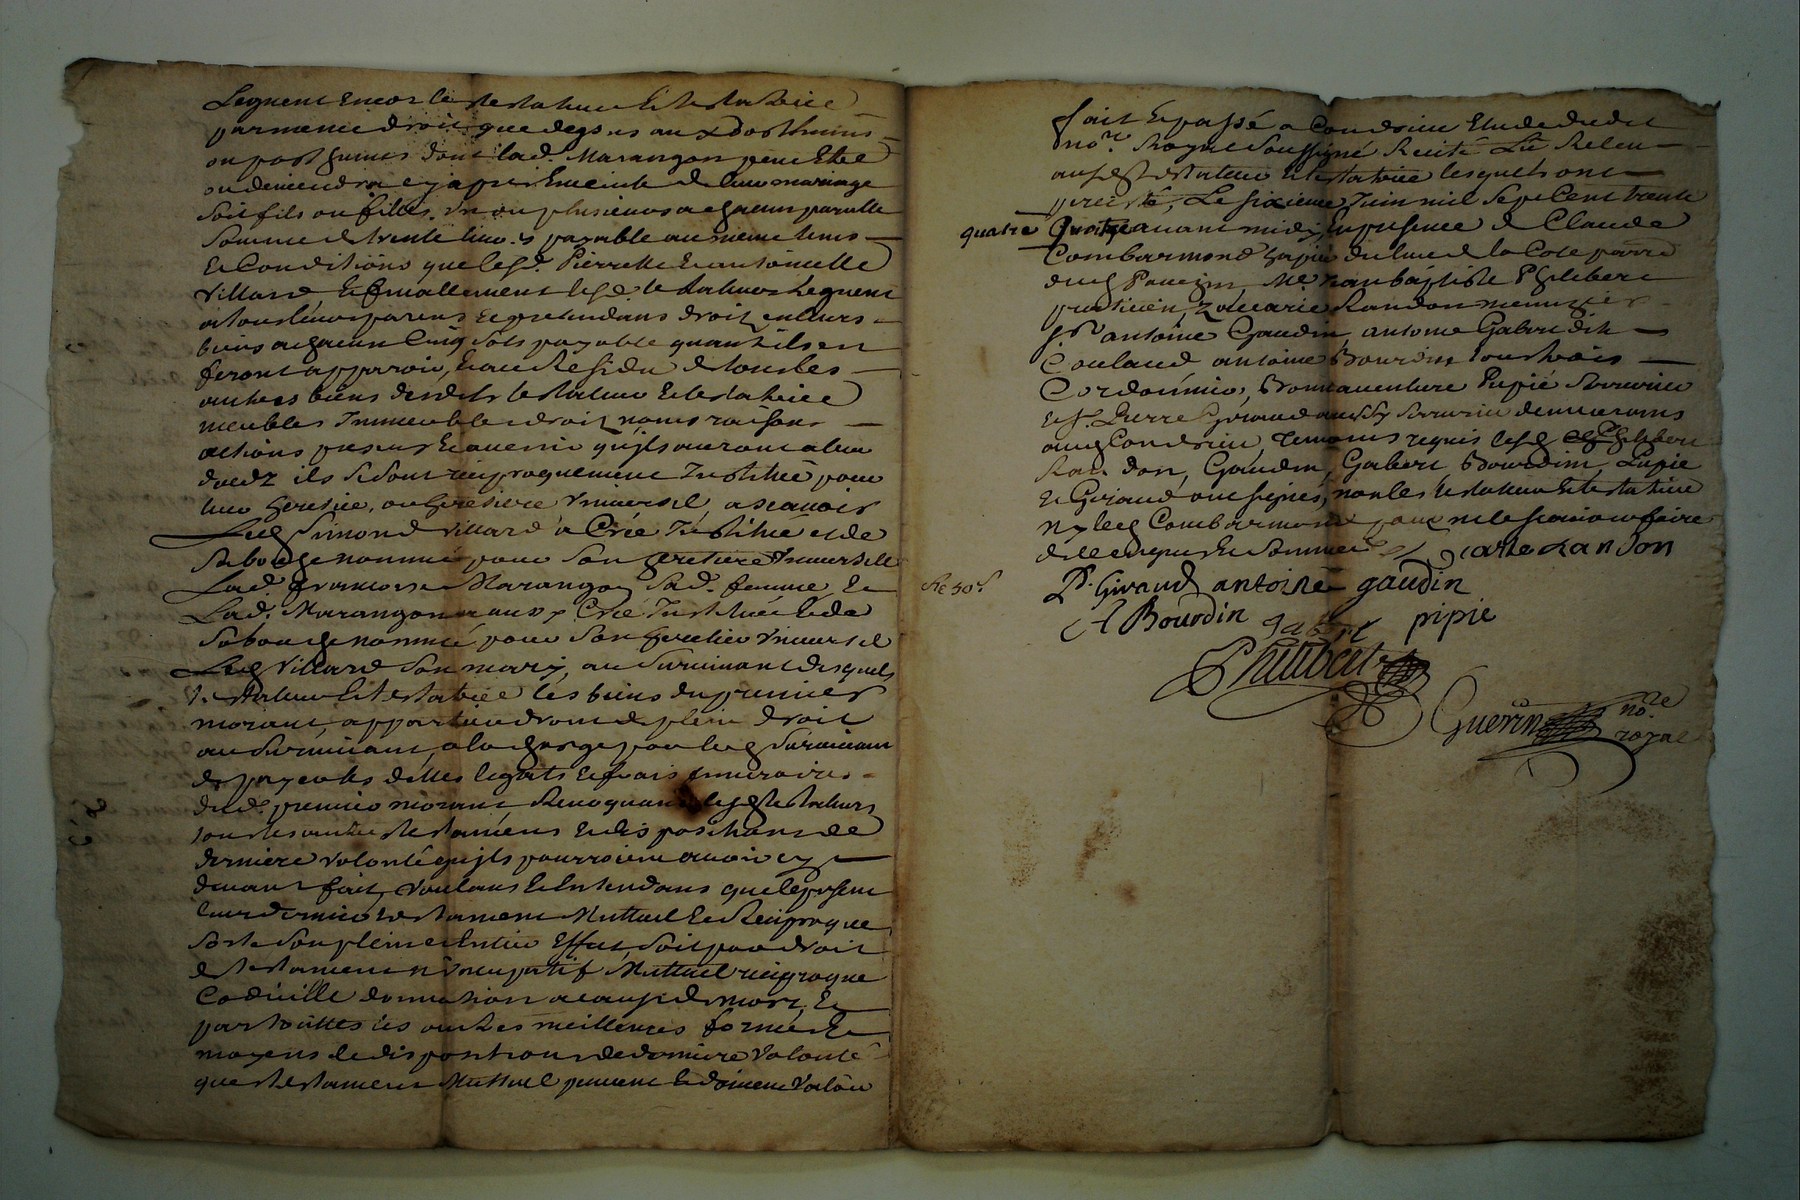 Leguent encor lesd testateur et testatrice
par meme droit que dessus aux posthumes
ou posthumes dont lad. Marangon peut Etre
ou deviendra cy apres Enceinte de leur mariage
soit fils ou filles, un ou plusieurs a chacun pareille
somme de trente livres payable au meme tems
et Conditions que lesd. Pierrette et antoinette
Villard, et finallement lesd. testateurs Leguent
a tous leurs parens et pretendans droit en leurs
biens a chacun Cinq sols payable quant ils en
feront apparoir, Et au Residu de tous les
autres biens desdits testateur et testatrice
meubles Immeubles droits noms raisons
actions presens et avenir qu'ils auront a leur
deces ils se sont reciproquement Institué pour
leur heritier, ou heritiere universel, a scavoir
Led Simond Villard a Créé Institué et de
sa bouche nommé pour son heritiere Universelle
Lad. francoise Marangon sad. femme, et
Lad. Marangon a aussy Créé Institué et de
sa bouche nommé pour son heritier universel
Led Villard son mary, au survivant desquels
testateur et testatrice les biens du premier
mourant, appartiendront de plein droit
au survivant, a la charge par led survivant
de payer les dettes legats et frais funeraires
dud. premier mourant, Revoquant lesd testateurs
tous les autres testamens et dispositions de
derniere volonté qu'ils pourroient avoir cy
devant fait, voulans et Entendans que le present
leur dernier testament Mutuel et Reciproque
sorte son plein et Entier Effet, soit par droit
de testament nuncupatif Mutuel reciproque
Codicille donnation a cause de mort, et
par touttes les autres meilleures formes et
moyens de dispositions de derniere volonté
que testament Mutuel peuvent et doivent valoir
fait et passé a Condrieu Etude dudit
no.re Royal soussigné Recité Lu Releu
auxd testateur et testatrice lesquels ont
persisté, Le sixieme Juin mil sept Cent trente
quatre quatre avant midy En presence de Claude
Combarmond du lieu de la Cote parroisse
Me Jean baptiste Philibert
praticien, Zaccarie Randon menuizier
sr antoine Gaudin, antoine Gabert dit
Coulaud antoine Bourdin tous trois
Cordonnier, Bonnaventure Pupié Serrurier
et sr. Pierre Giraud aussy serrurier demeurans
aud Condrieu, temoins requis lesd Philibert
Randon, Gaudin, Gabert Bourdin, Pupié
et Giraud ont signés, non les testateur et testatrice
ny led Combarmond pour ne le scavoir faire
de ce enquis et sommés Zacarie Randon
P. Giraud antoine gaudin
A Bourdin gabert pipie
Philibert
Guerin no.re
royal